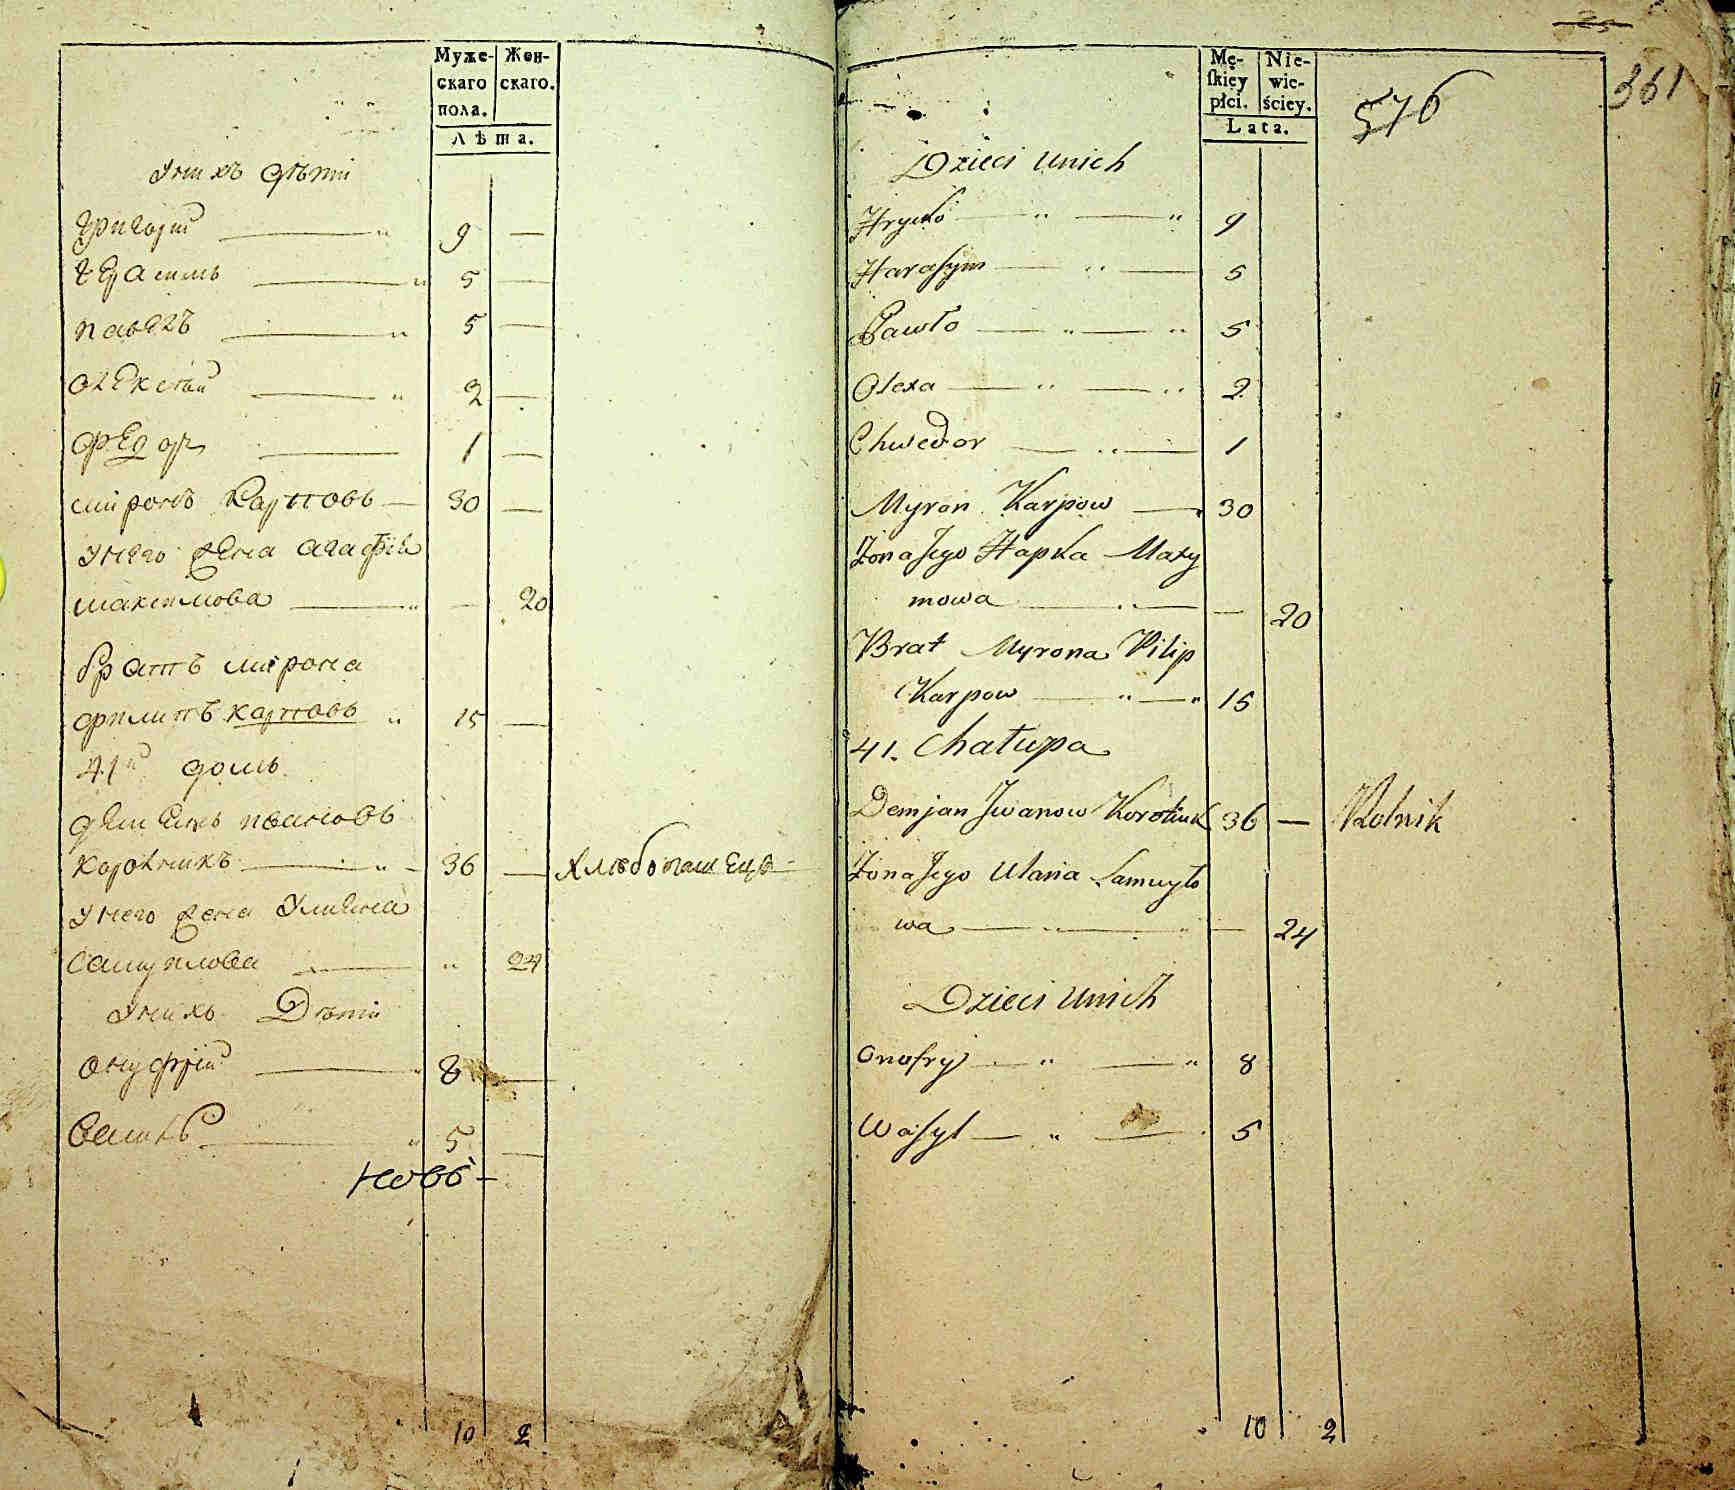 Муже-
скаго
пола.
Жен-
скаго.
Лѣта.
Унихъ дѣти
Григорій 9 —
Герасимъ 5 —
Павелъ 5 —
Алексѣй 2 —
Федор 1 —
Миронъ Карповъ — 30 —
Унего жена Агафія
Максимова — 20
братъ Мирона
Филипъ Карповъ 15 —
41й домъ
Демянъ Ивановъ
36 — Хлѣбопашецъ
Унего жена Улияна
Самуилова 24
Унихъ Дѣти
Онуфрій 8 —
5 —
10 2
25
361
576
Mę-
ſkiey
płci.
Nie-
wie-
ściey.
Lata.
Dzieci unich
Hryćko 9
Harasym 5
Pawło 5
Olexa 2
Chwedor 1
Myron Karpow 30
Żona Jego Hapka Maxy
mowa — 20
Brat Myrona Pilip
Karpow 15
41. Chałupa
Demjan Jwanow 36 — Rolnik
Żona Jego Ulana Samuyło
wa — 24
Dzieci unich
Onofry 8
Wasyl 5
10 2